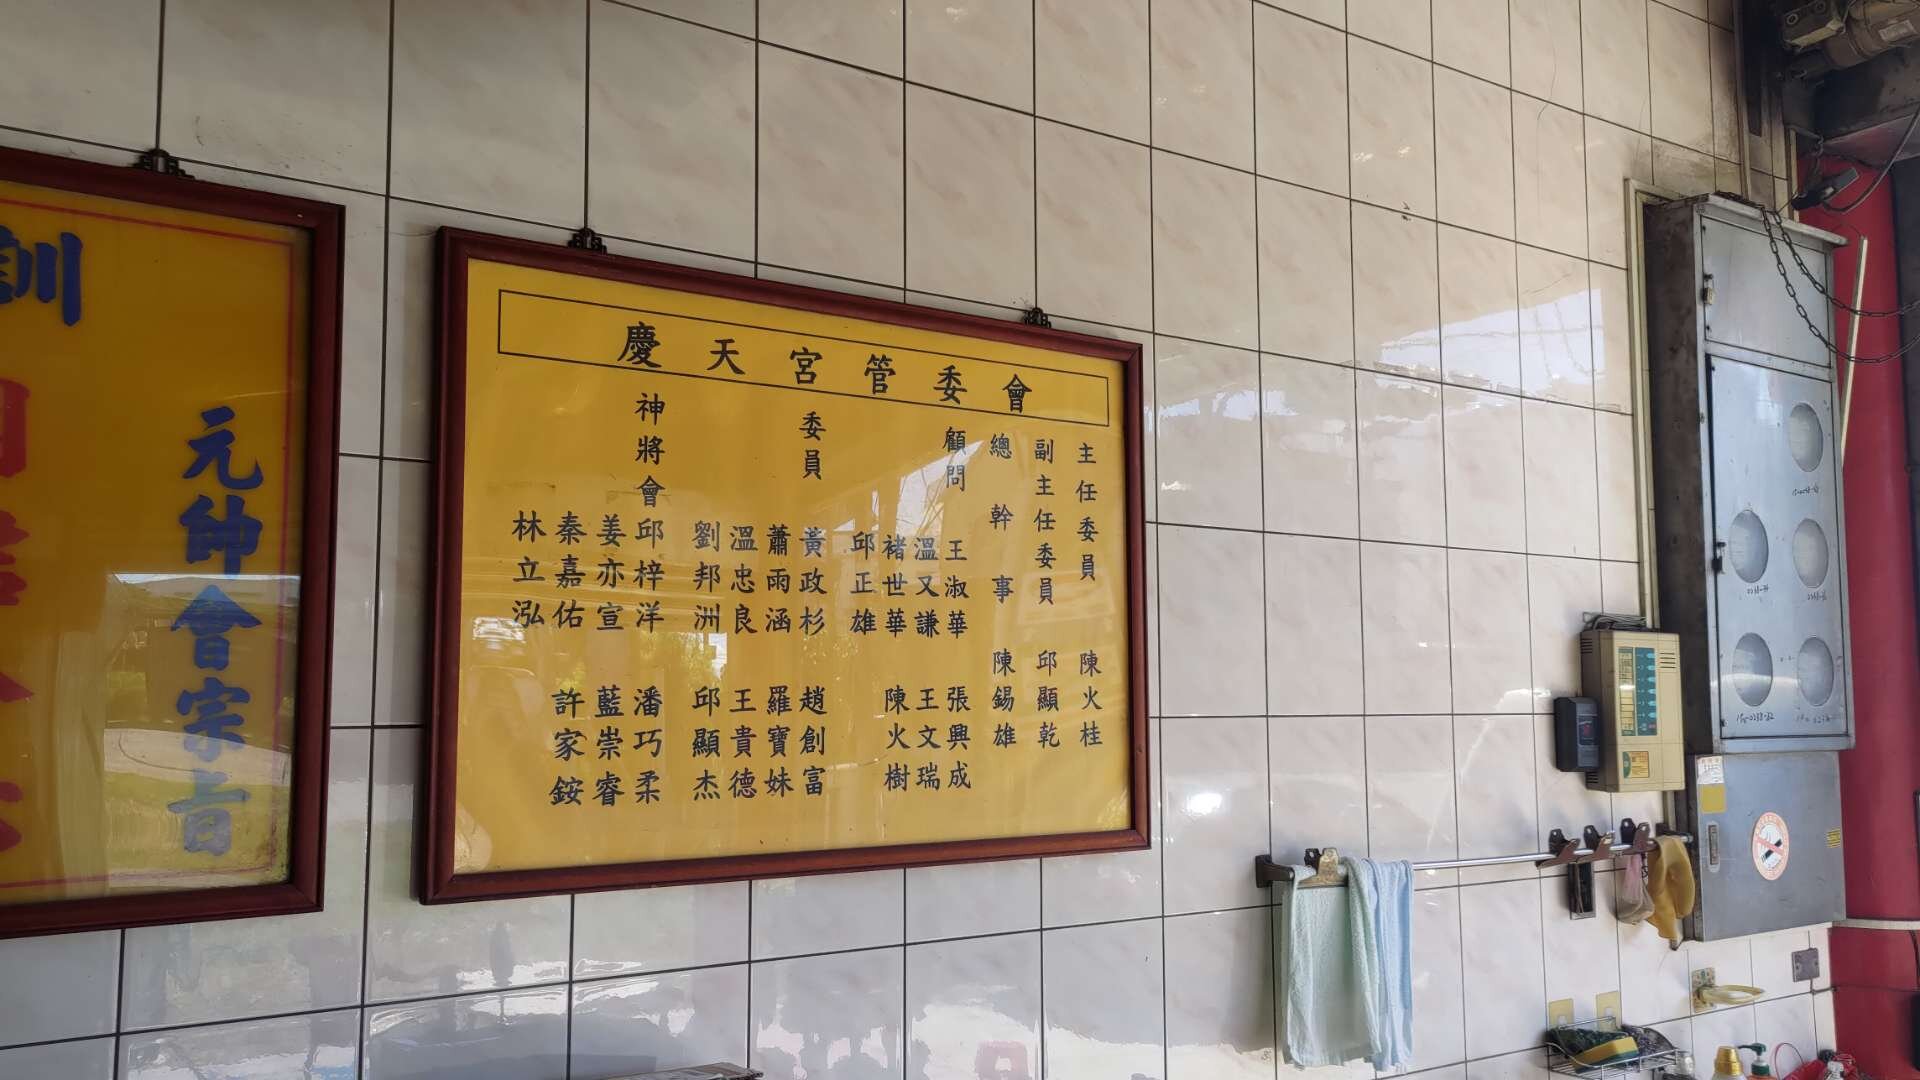 慶天宮管委會
主任委員 陳火桂
副主任委員 邱顯乾
總幹事 陳錫雄
顧問 王淑華 張興成
溫又謙 王文瑞
褚世華 陳火樹
邱正雄
委員 黃政杉 趙創富
蕭雨涵 羅寶妹
溫忠良 王貴德
劉邦洲 邱顯杰
神將會 邱梓洋 潘巧柔
姜亦宣 藍崇睿
秦嘉佑 許家銨
林立泓
訓
元帥會宗旨